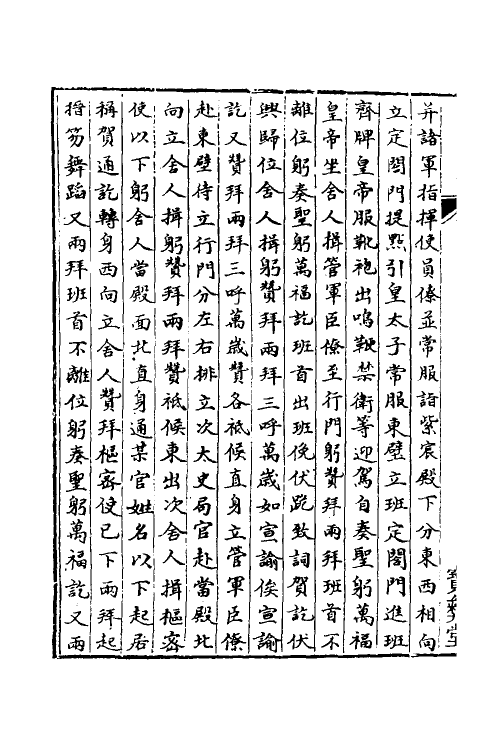 并諸軍指揮使員僚並常服詣紫宸殿下分東西相向
立定閤門提㸃引皇太子常服東壁立班定閤門進班
齊牌皇帝服靴袍出鳴鞭禁衛等迎駕自奏聖躬萬福
皇帝坐舍人揖管軍臣僚至行門躬贊拜兩拜班首不
離位躬奏聖躬萬福訖班首出班俛伏跪致詞賀訖伏
興歸位舍人揖躬贊拜兩拜三呼萬歲如宣諭俟宣諭
訖又贊拜兩拜三呼萬歲贊各祗候直身立管軍臣僚
赴東壁侍立行門分左右排立次太史局官赴當殿北
向立舍人揖躬贊拜兩拜贊祗候東出次舍人揖樞宻
使以下躬舍人當殿面北直身通某官姓名以下起居
稱賀通訖轉身西向立舍人贊拜樞宻使已下兩拜起
搢笏舞蹈又兩拜班首不離位躬奏聖躬萬福訖又兩